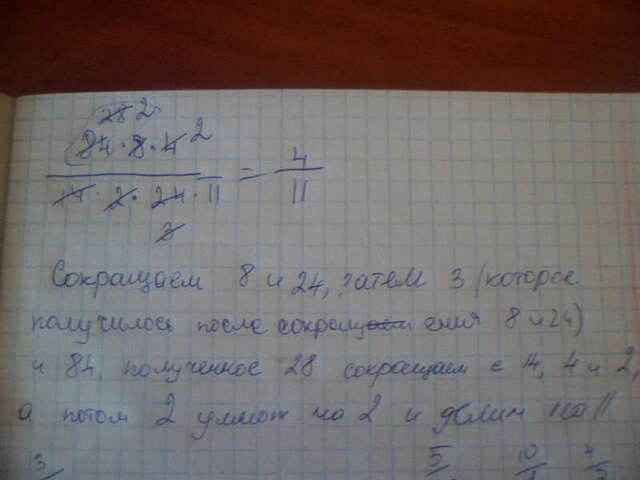 28 2
84 · 8 · 4 2
14 · 2 · 24 · 11 = 4/11
3
Сокращаем 8 и 24, затем 3 (которое
получилось после сокращ ения 8 и 24)
и 84, полученное 28 сокращаем с 14, 4 и 2,
а потом 2 умнож. на 2 и делим на 11
3 5 10 4